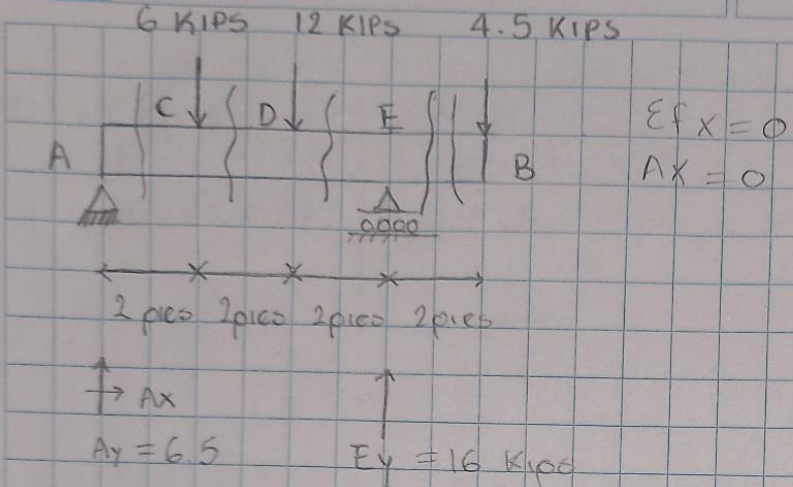 6 KIPS 12 KIPS 4.5 KIPS
C D E
A B
Σfx = 0
AX = 0
2 pies 2pies 2pies 2pies
Ax
Ay = 6.5 Ey = 16 Kips